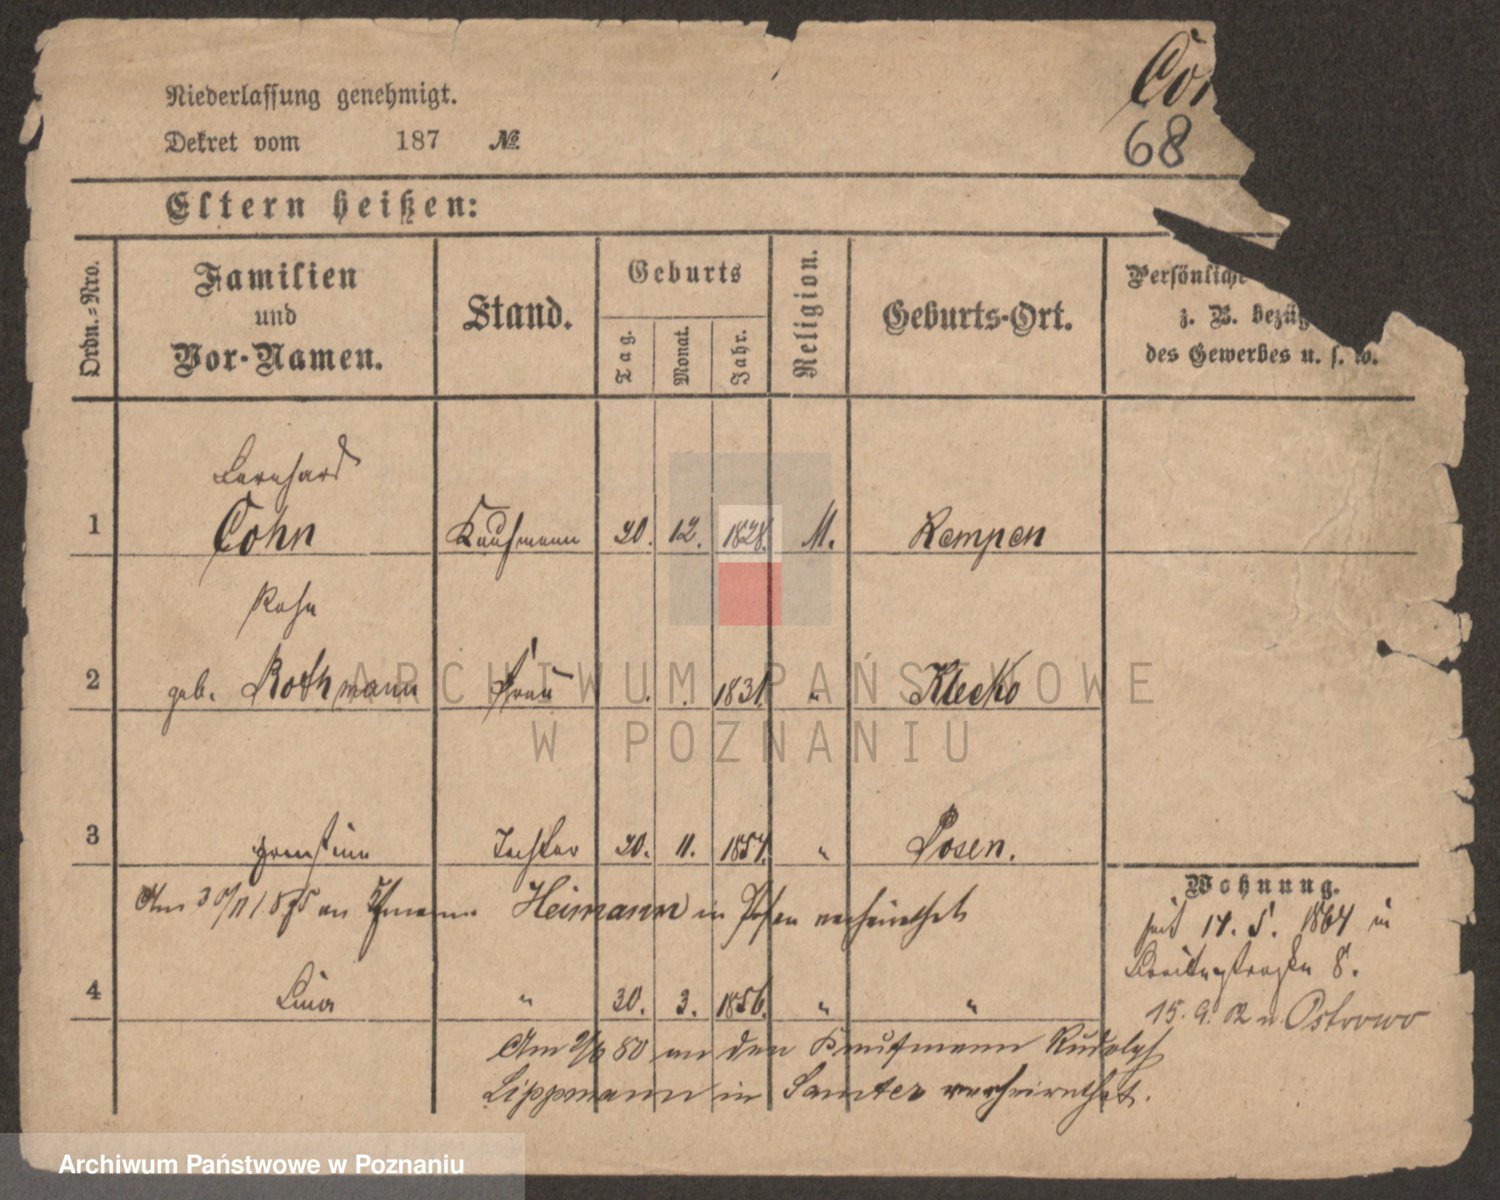 Niederlassung genehmigt.
Dekret vom 187 №
68
Eltern heißen:
Ordn.-Nro.
Familien und Vor-Namen.
Stand.
Geburts
Tag.
Monat.
Jahr.
Religion.
Geburts-Ort.
Persönliche
z. B. bezüg
des Gewerbes u. s. w.
Bernhard
1 Cohn Kaufmann 20. 12. 1828. M. Kempen
2 geb. Rothmann Frau 1831. " Klecko
3 Ernestine Tochter 20. 11. 1854. " Posen.
Am 30/11 1875 an Heimann in Posen verheirathet
4 Lina " 30. 3. 1856. " "
Am 80 an den Kaufmann Rudolph
Lippmann in Samter verheirathet.
Wohnung.
seit 14. 5. 1864 in
Breitestraße 8.
15. 9. 02 n Ostrowo
ARCHIWUM PAŃSTWOWE
W POZNANIU
Archiwum Państwowe w Poznaniu